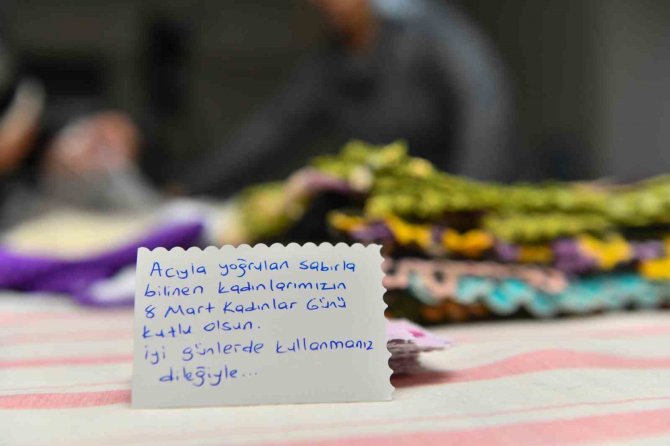 Acıyla yoğrulan sabırla
bilinen kadınlarımızın
8 Mart Kadınlar Günü
kutlu olsun.
iyi günlerde kullanmanız
dileğiyle...